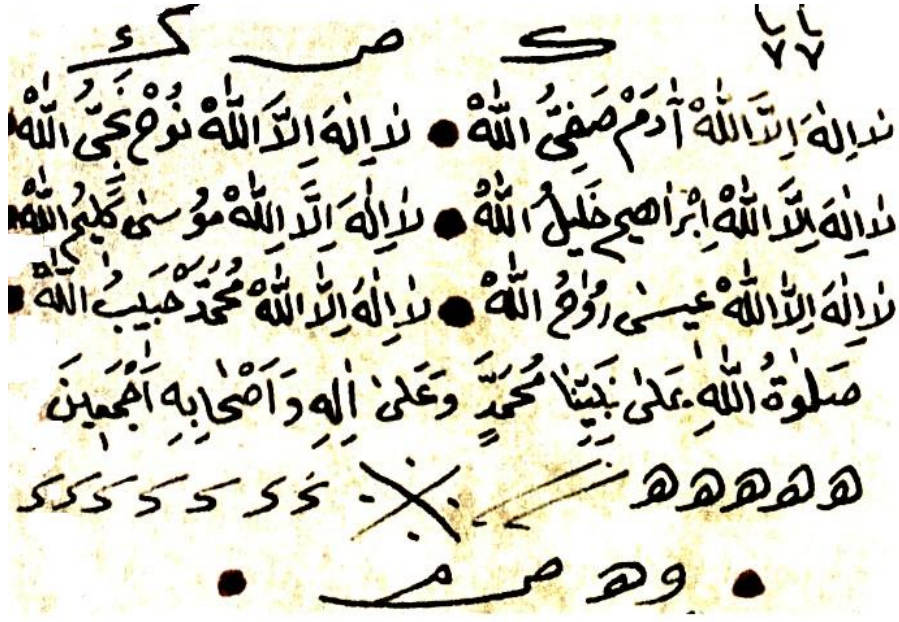 ك ص ك
لا اِلٰهَ اِلَّا اللّٰهْ آدَمْ صَفِىُّ اللّٰهْ ● لا اِلٰهَ اِلَّا اللّٰهْ نُوْحْ نَجِىُّ اللّٰهْ
لا اِلٰهَ اِلَّا اللّٰهْ اِبْرٰاهيم خَليلُ اللّٰهْ ● لا اِلٰهَ اِلَّا اللّٰهْ مُوْسىٰ كَليمُ اللّٰهْ
لا اِلٰهَ اِلَّا اللّٰهْ عيسىٰ رُوْحُ اللّٰهْ ● لا اِلٰهَ اِلَّا اللّٰهْ مُحَمَّدْ حَبيبُ اللّٰهْ
صَلٰوةُ اللّٰهِ عَلىٰ نَبِيِّنا مُحَمَّدٍ وَعَلىٰ اٰلِهِ وَاَصْحٰابِهِ اَجْمَعينَ
ه ه ه ه ه
● و ه ص م ●